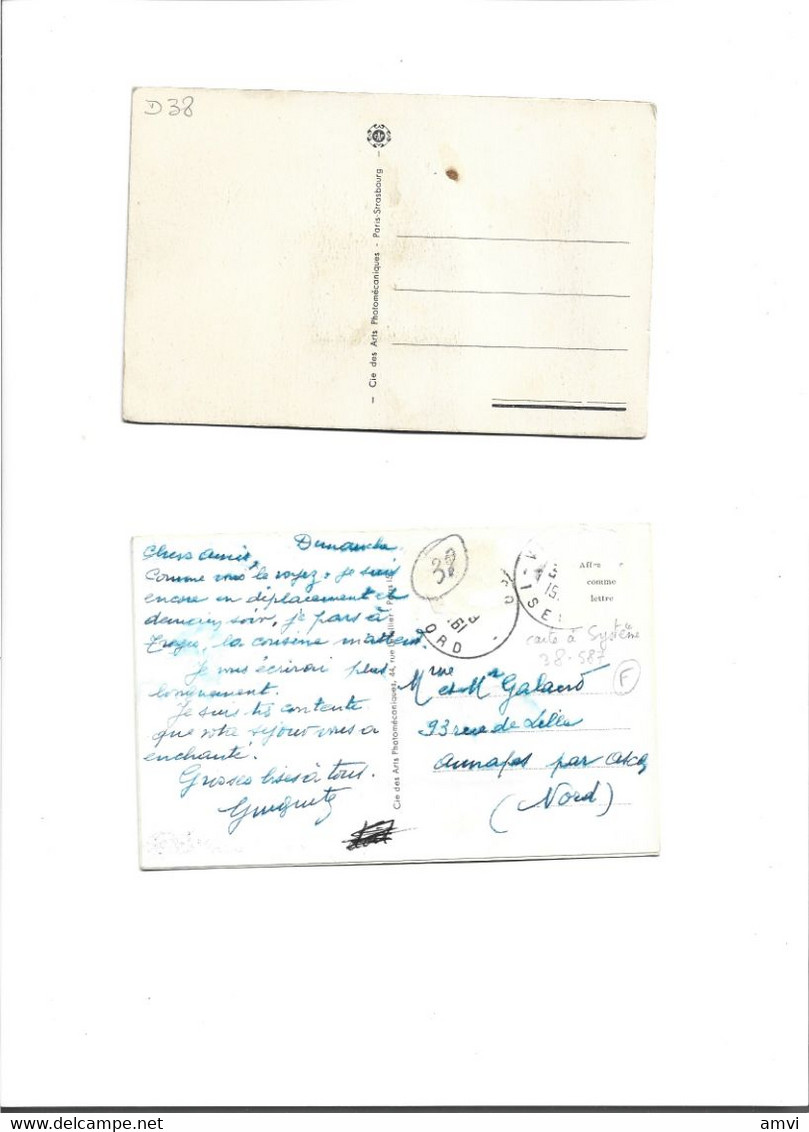 D38
— Cie des Arts Photomécaniques - Paris-Strasbourg —
Chers amis, Dimanche.
Comme vous le voyez, je suis
encore en déplacement et
demain soir, je pars à
la cousine m'attend.
Je vous écrirai plus
longuement.
Je suis très contente
que votre séjour vous a
enchanté.
Grosses bises à tous.
Cie des Arts Photomécaniques, 44, rue Paris
38
61
ORD
ISE
comme
lettre
carte à Système
38-587
F
Mme et Mr
93 rue de Lille
Annapes par Ascq
(Nord)
amvi